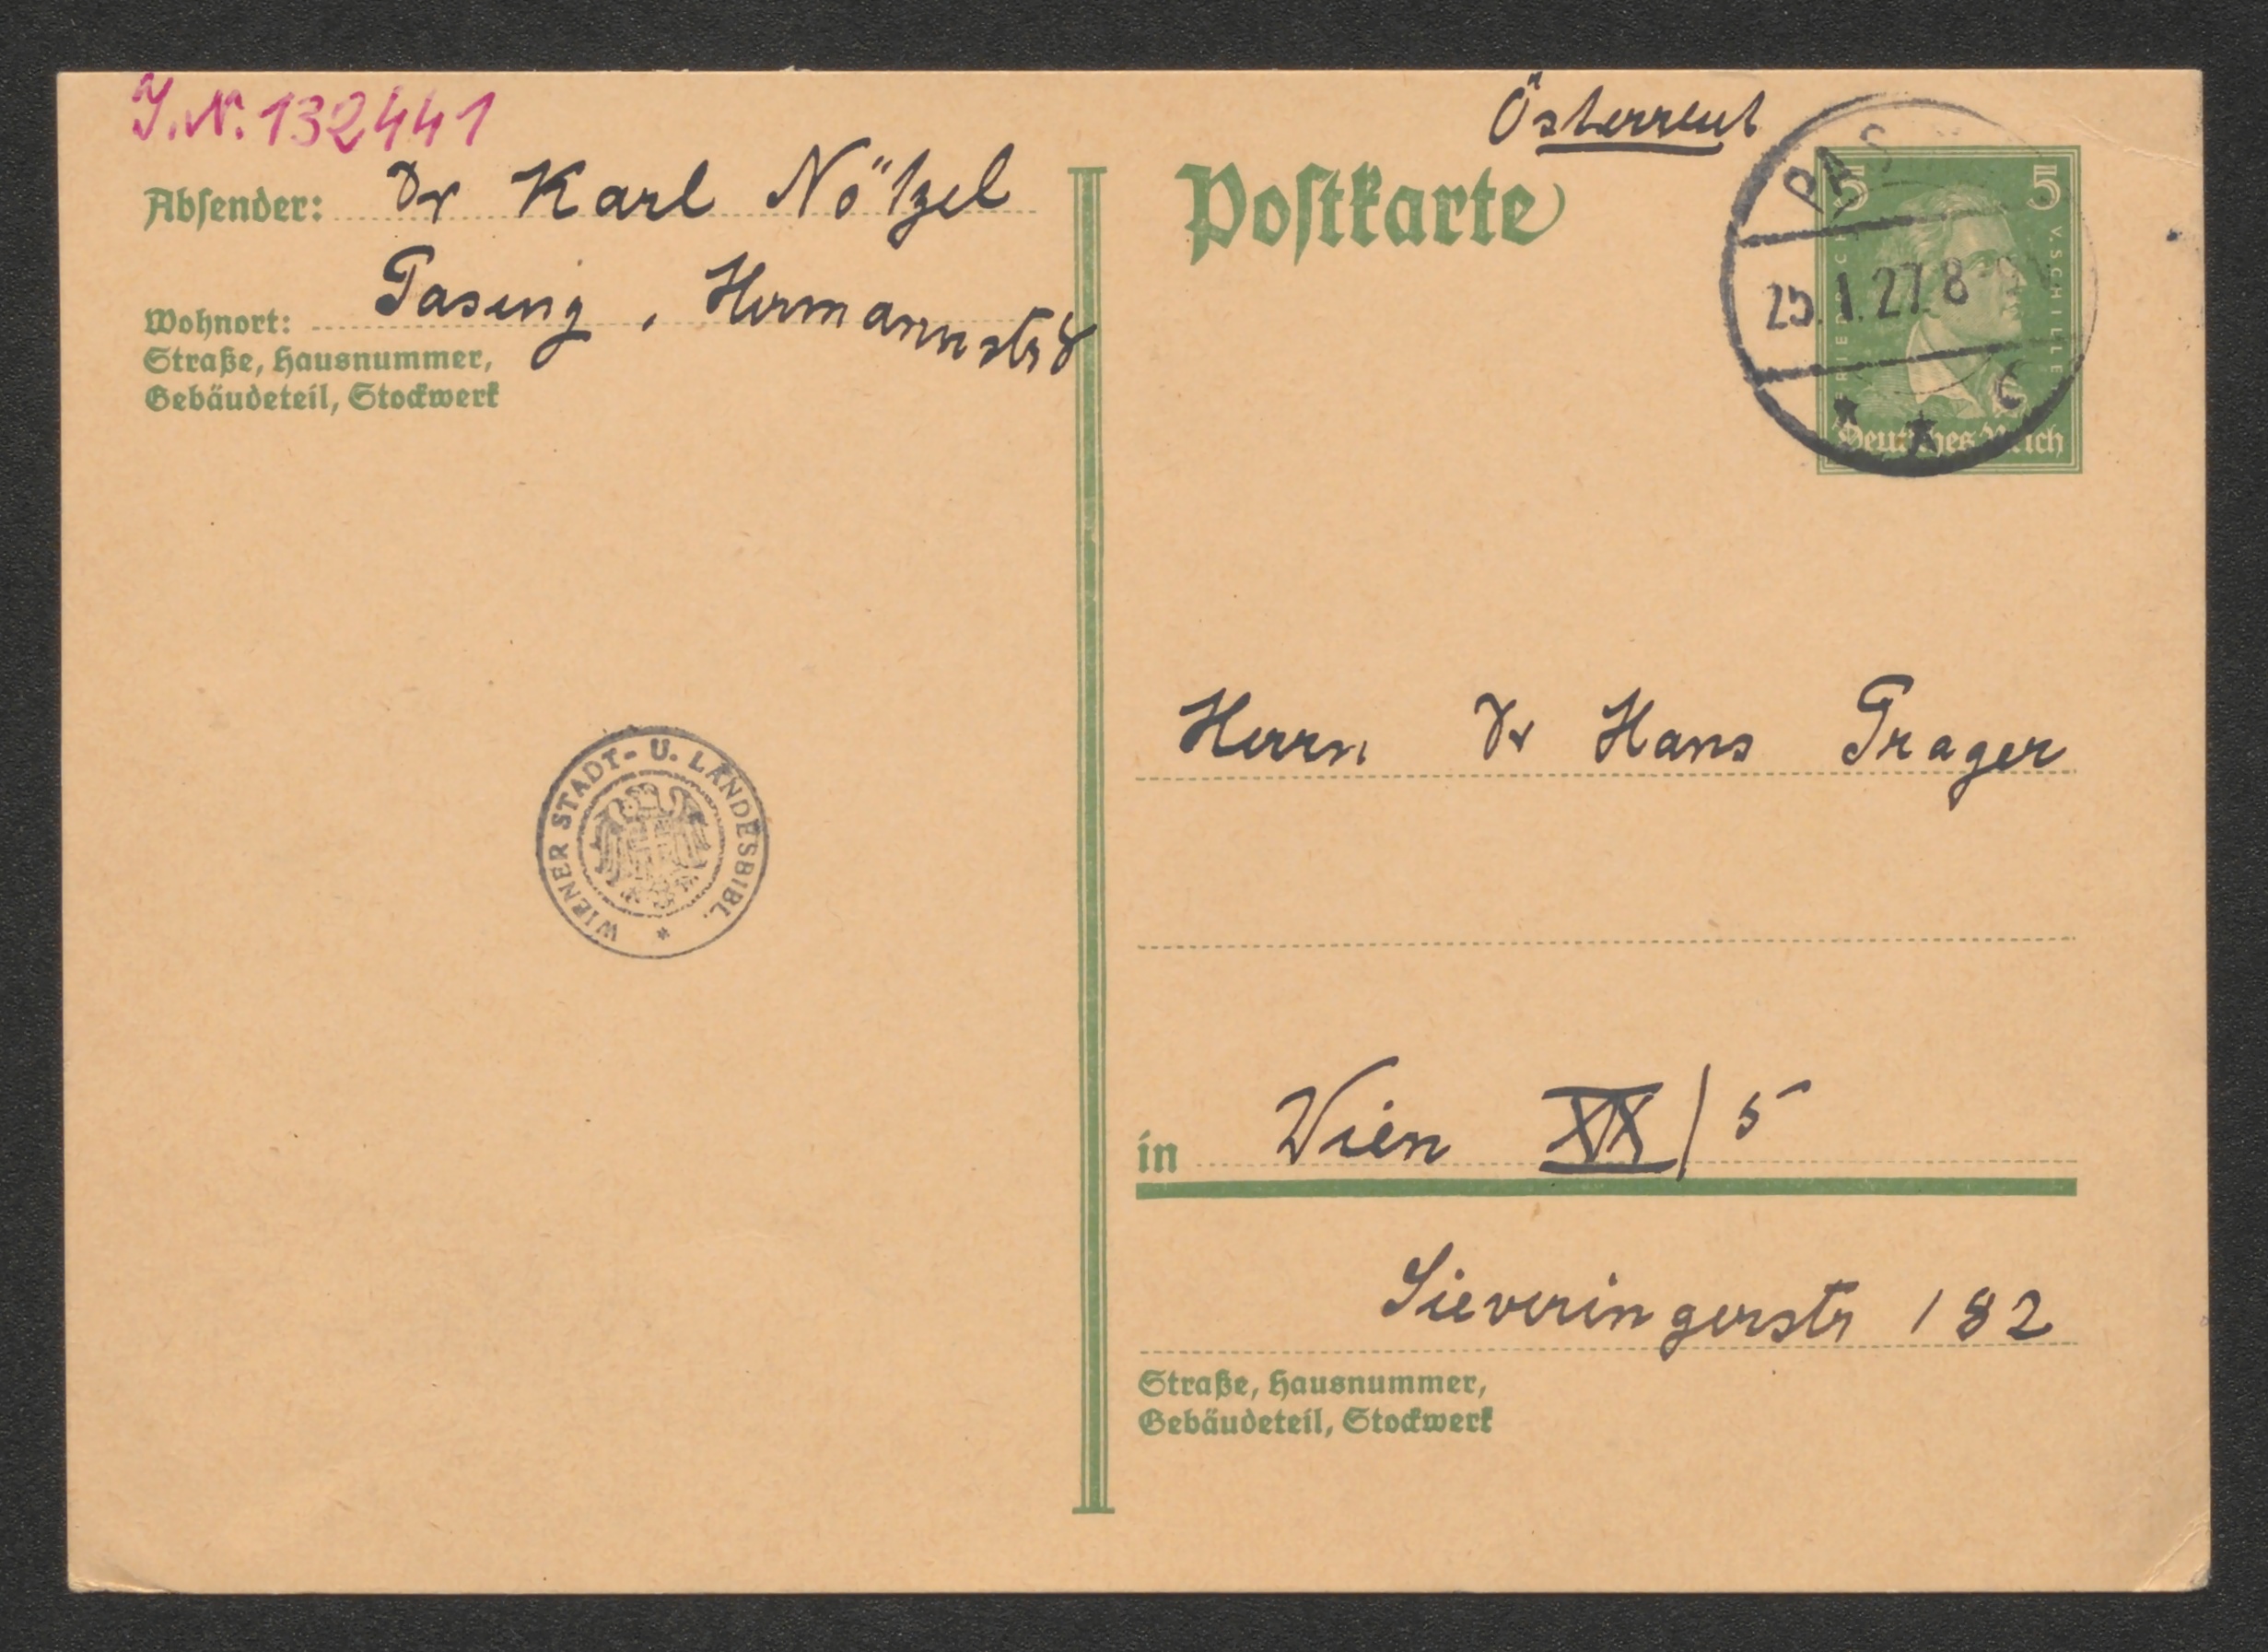 J.N. 132441
Absender: Dr Karl Nötzel
Wohnort: Pasing, Hermannstr 8
Straße, Hausnummer,
Gebäudeteil, Stockwerk
WIENER STADT- U. LANDESBIBL.
Österreich
Postkarte
5 5
FRIEDRICH V. SCHILLER
Deutsches Reich
PAS
25.1.27. 8
Herrn Dr Hans Prager
in Wien XX/5
Sieveringerstr 182
Straße, Hausnummer,
Gebäudeteil, Stockwerk